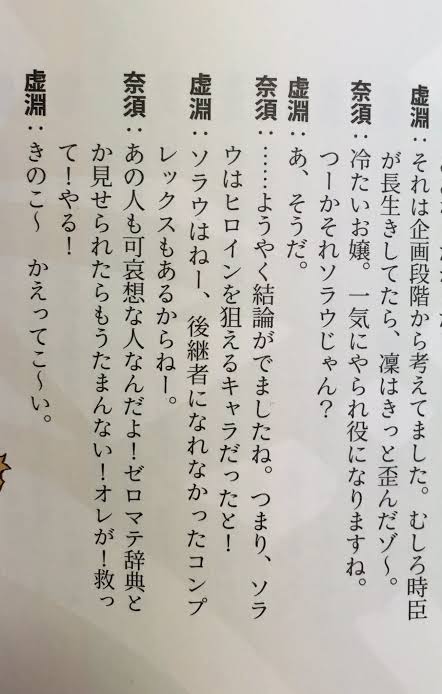 虚淵：それは企画段階から考えてました。むしろ時臣
が長生きしてたら、凜はきっと歪んだゾ〜。
奈須：冷たいお嬢。一気にやられ役になりますね。
つーかそれソラウじゃん？
虚淵：あ、そうだ。
奈須：……ようやく結論がでましたね。つまり、ソラ
ウはヒロインを狙えるキャラだったと！
虚淵：ソラウはねー、後継者になれなかったコンプ
レックスもあるからねー。
奈須：あの人も可哀想な人なんだよ！ゼロマテ辞典と
か見せられたらもうたまんない！オレが！救っ
て！やる！
虚淵：きのこ〜　かえってこ〜い。